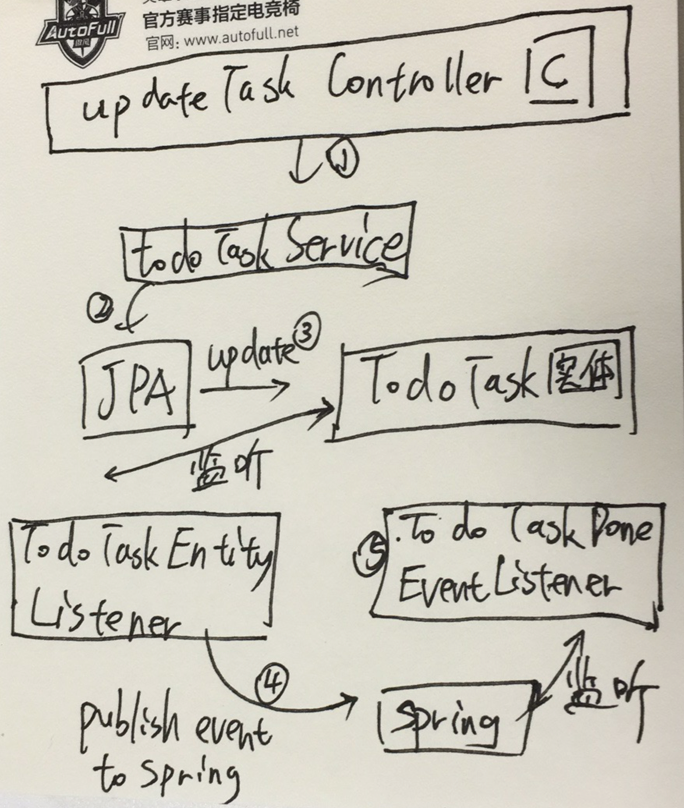 AutoFull
傲风
官方赛事指定电竞椅
官网：www.autofull.net
update Task Controller C
①
todo Task Service
②
JPA
update ③
Todo Task 实体
监听
Todo Task Entity
Listener
⑤ .To do Task Done
Event Listener
④
监听
Spring
publish event
to spring